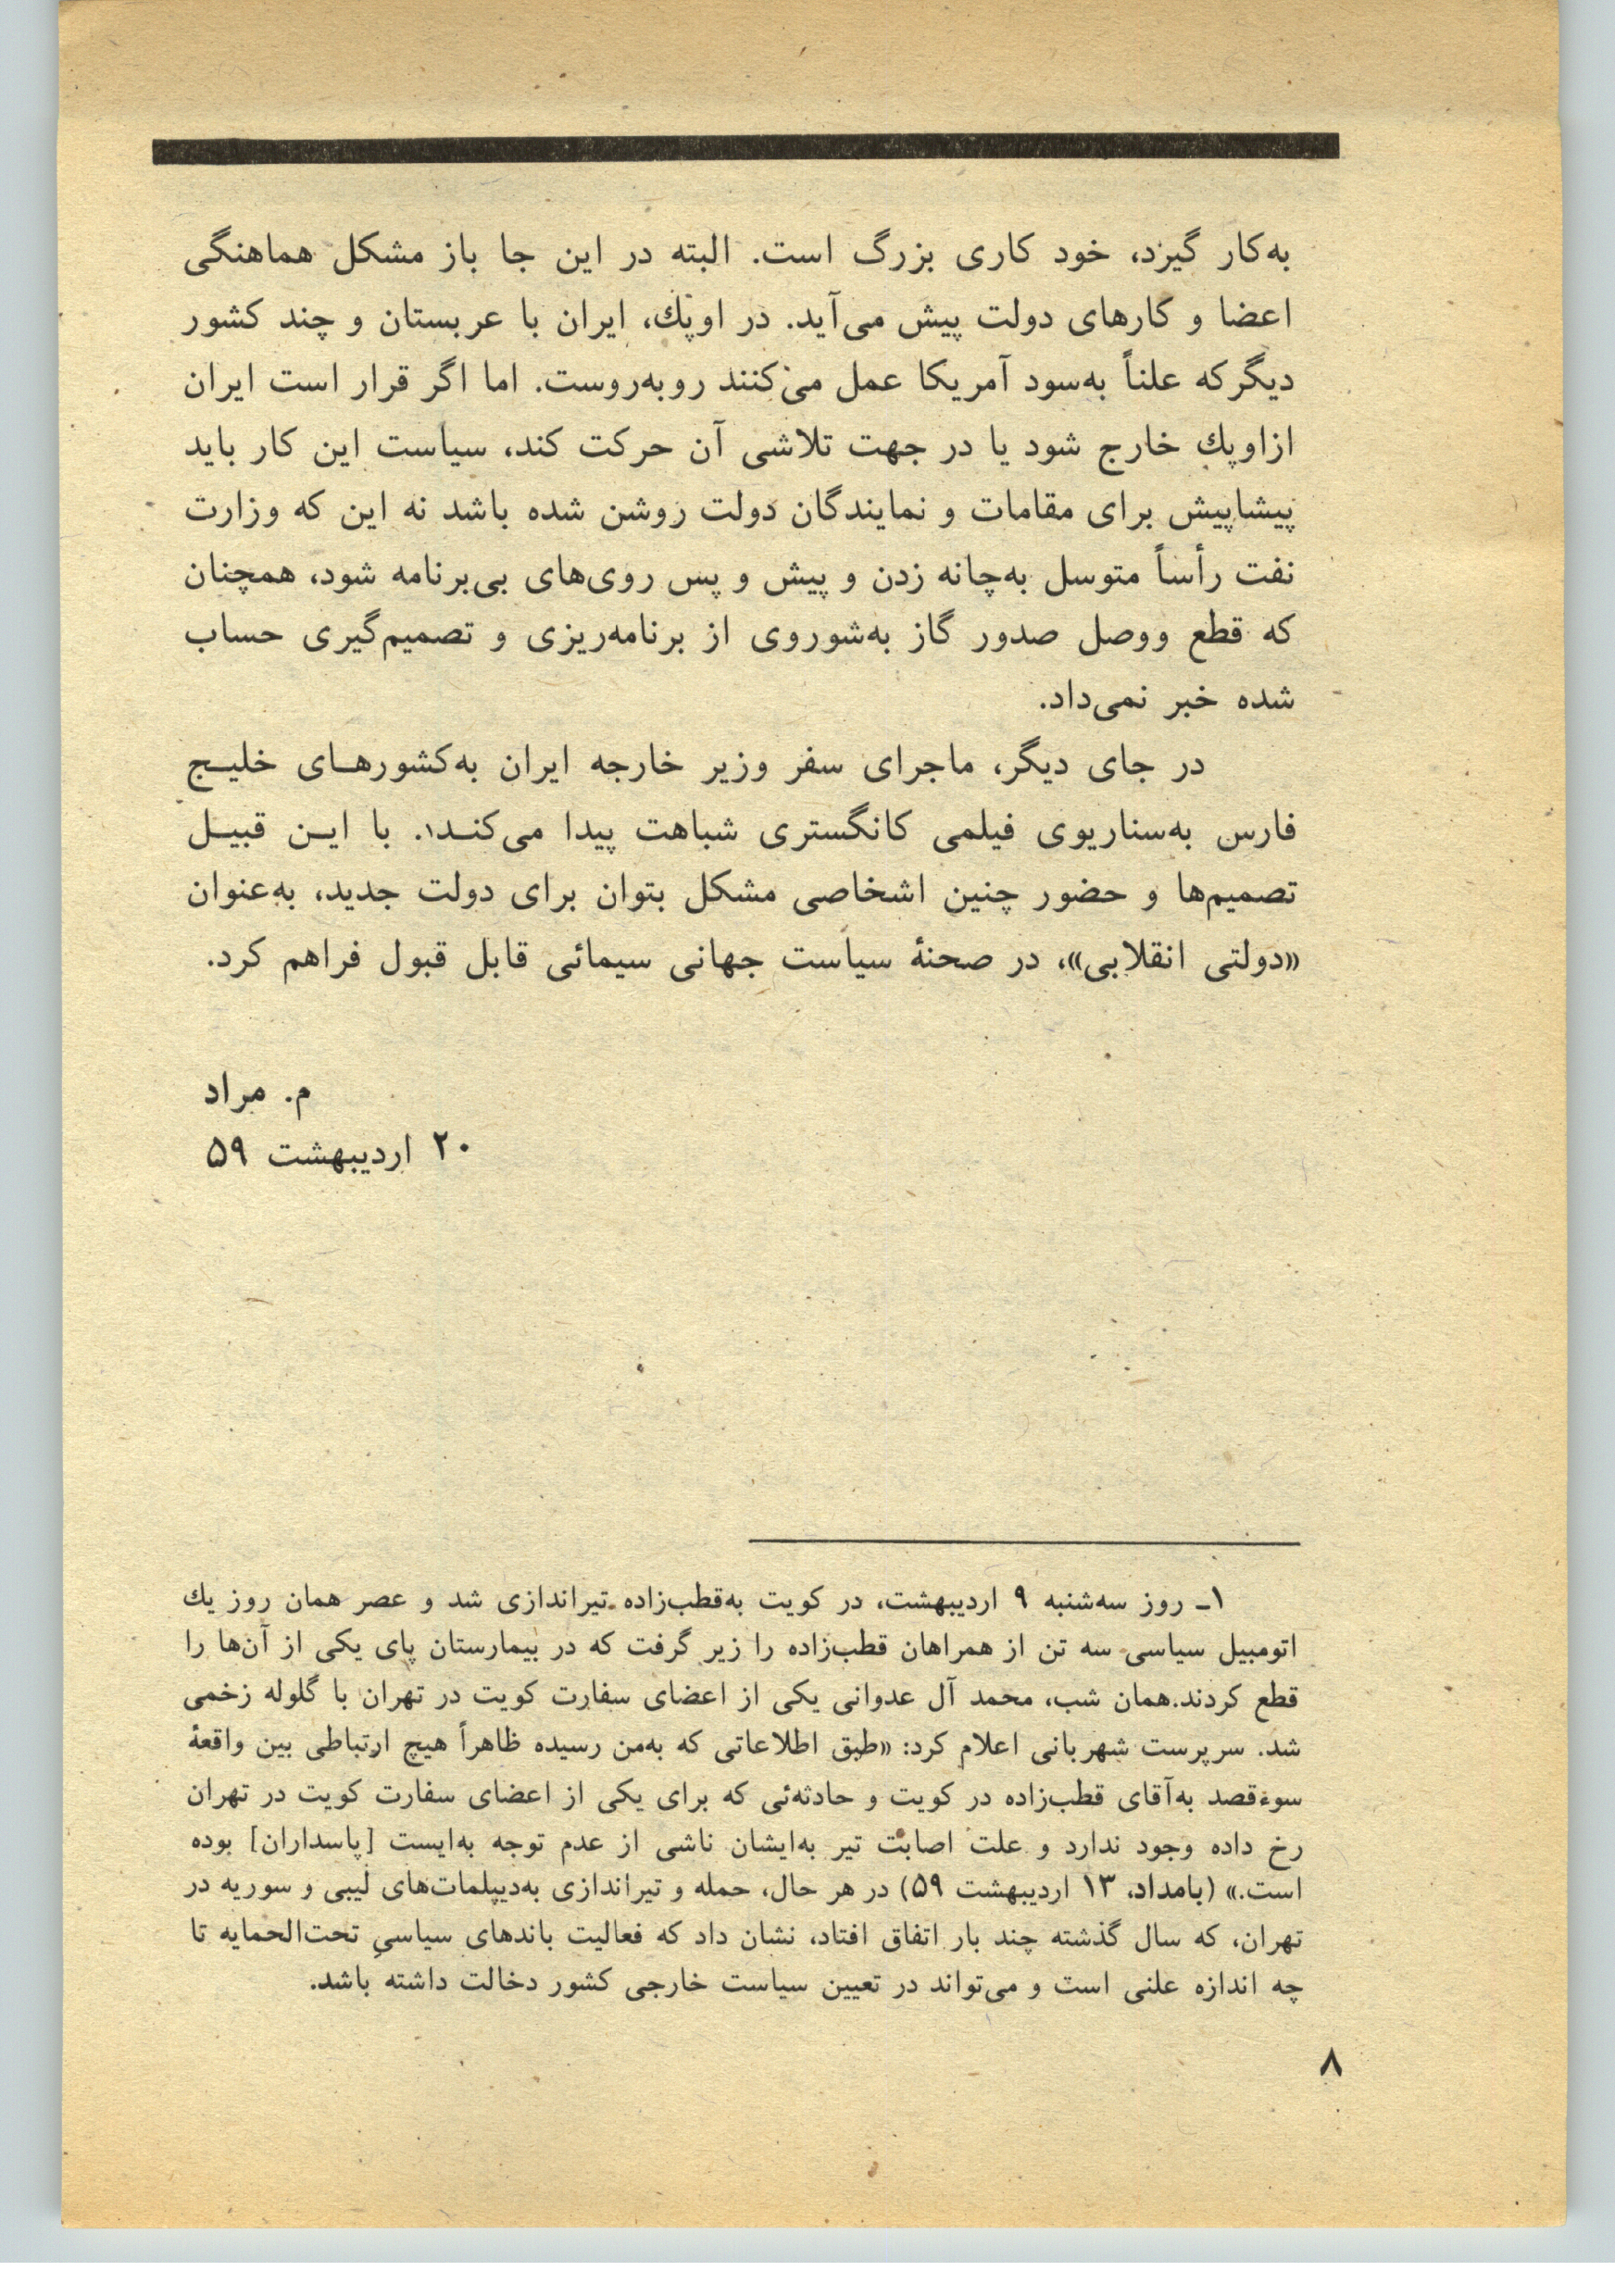 به‌کار گیرد، خود کاری بزرگ است. البته در این جا باز مشکل هماهنگی
اعضا و کارهای دولت پیش می‌آید. در اوپك، ایران با عربستان و چند کشور
دیگرکه علناً به‌سود آمریکا عمل می‌کنند روبه‌روست. اما اگر قرار است ایران
ازاوپك خارج شود یا در جهت تلاشی آن حرکت کند، سیاست این کار باید
پیشاپیش برای مقامات و نمایندگان دولت روشن شده باشد نه این که وزارت
نفت رأساً متوسل به‌چانه زدن و پیش و پس روی‌های بی‌برنامه شود، همچنان
که قطع ووصل صدور گاز به‌شوروی از برنامه‌ریزی و تصمیم‌گیری حساب
شده خبر نمی‌داد.
در جای دیگر، ماجرای سفر وزیر خارجه ایران به‌کشورهـای خلیـج
فارس به‌سناریوی فیلمی کانگستری شباهت پیدا می‌کنـد۱. با ایـن قبیـل
تصمیم‌ها و حضور چنین اشخاصی مشکل بتوان برای دولت جدید، به‌عنوان
«دولتی انقلابی»، در صحنۀ سیاست جهانی سیمائی قابل قبول فراهم کرد.
م. مراد
۲۰ اردیبهشت ۵۹
۱ـ روز سه‌شنبه ۹ اردیبهشت، در کویت به‌قطب‌زاده تیراندازی شد و عصر همان روز یك
اتومبیل سیاسی سه تن از همراهان قطب‌زاده را زیر گرفت که در بیمارستان پای یکی از آن‌ها را
قطع کردند.همان شب، محمد آل عدوانی یکی از اعضای سفارت کویت در تهران با گلوله زخمی
شد. سرپرست شهربانی اعلام کرد: «طبق اطلاعاتی که به‌من رسیده ظاهراً هیچ ارتباطی بین واقعۀ
سوءقصد به‌آقای قطب‌زاده در کویت و حادثه‌ئی که برای یکی از اعضای سفارت کویت در تهران
رخ داده وجود ندارد و علت اصابت تیر به‌ایشان ناشی از عدم توجه به‌ایست [پاسداران] بوده
است.» (بامداد، ۱۳ اردیبهشت ۵۹) در هر حال، حمله و تیراندازی به‌دیپلمات‌های لیبی و سوریه در
تهران، که سال گذشته چند بار اتفاق افتاد، نشان داد که فعالیت باندهای سیاسیِ تحت‌الحمایه تا
چه اندازه علنی است و می‌تواند در تعیین سیاست خارجی کشور دخالت داشته باشد.
۸